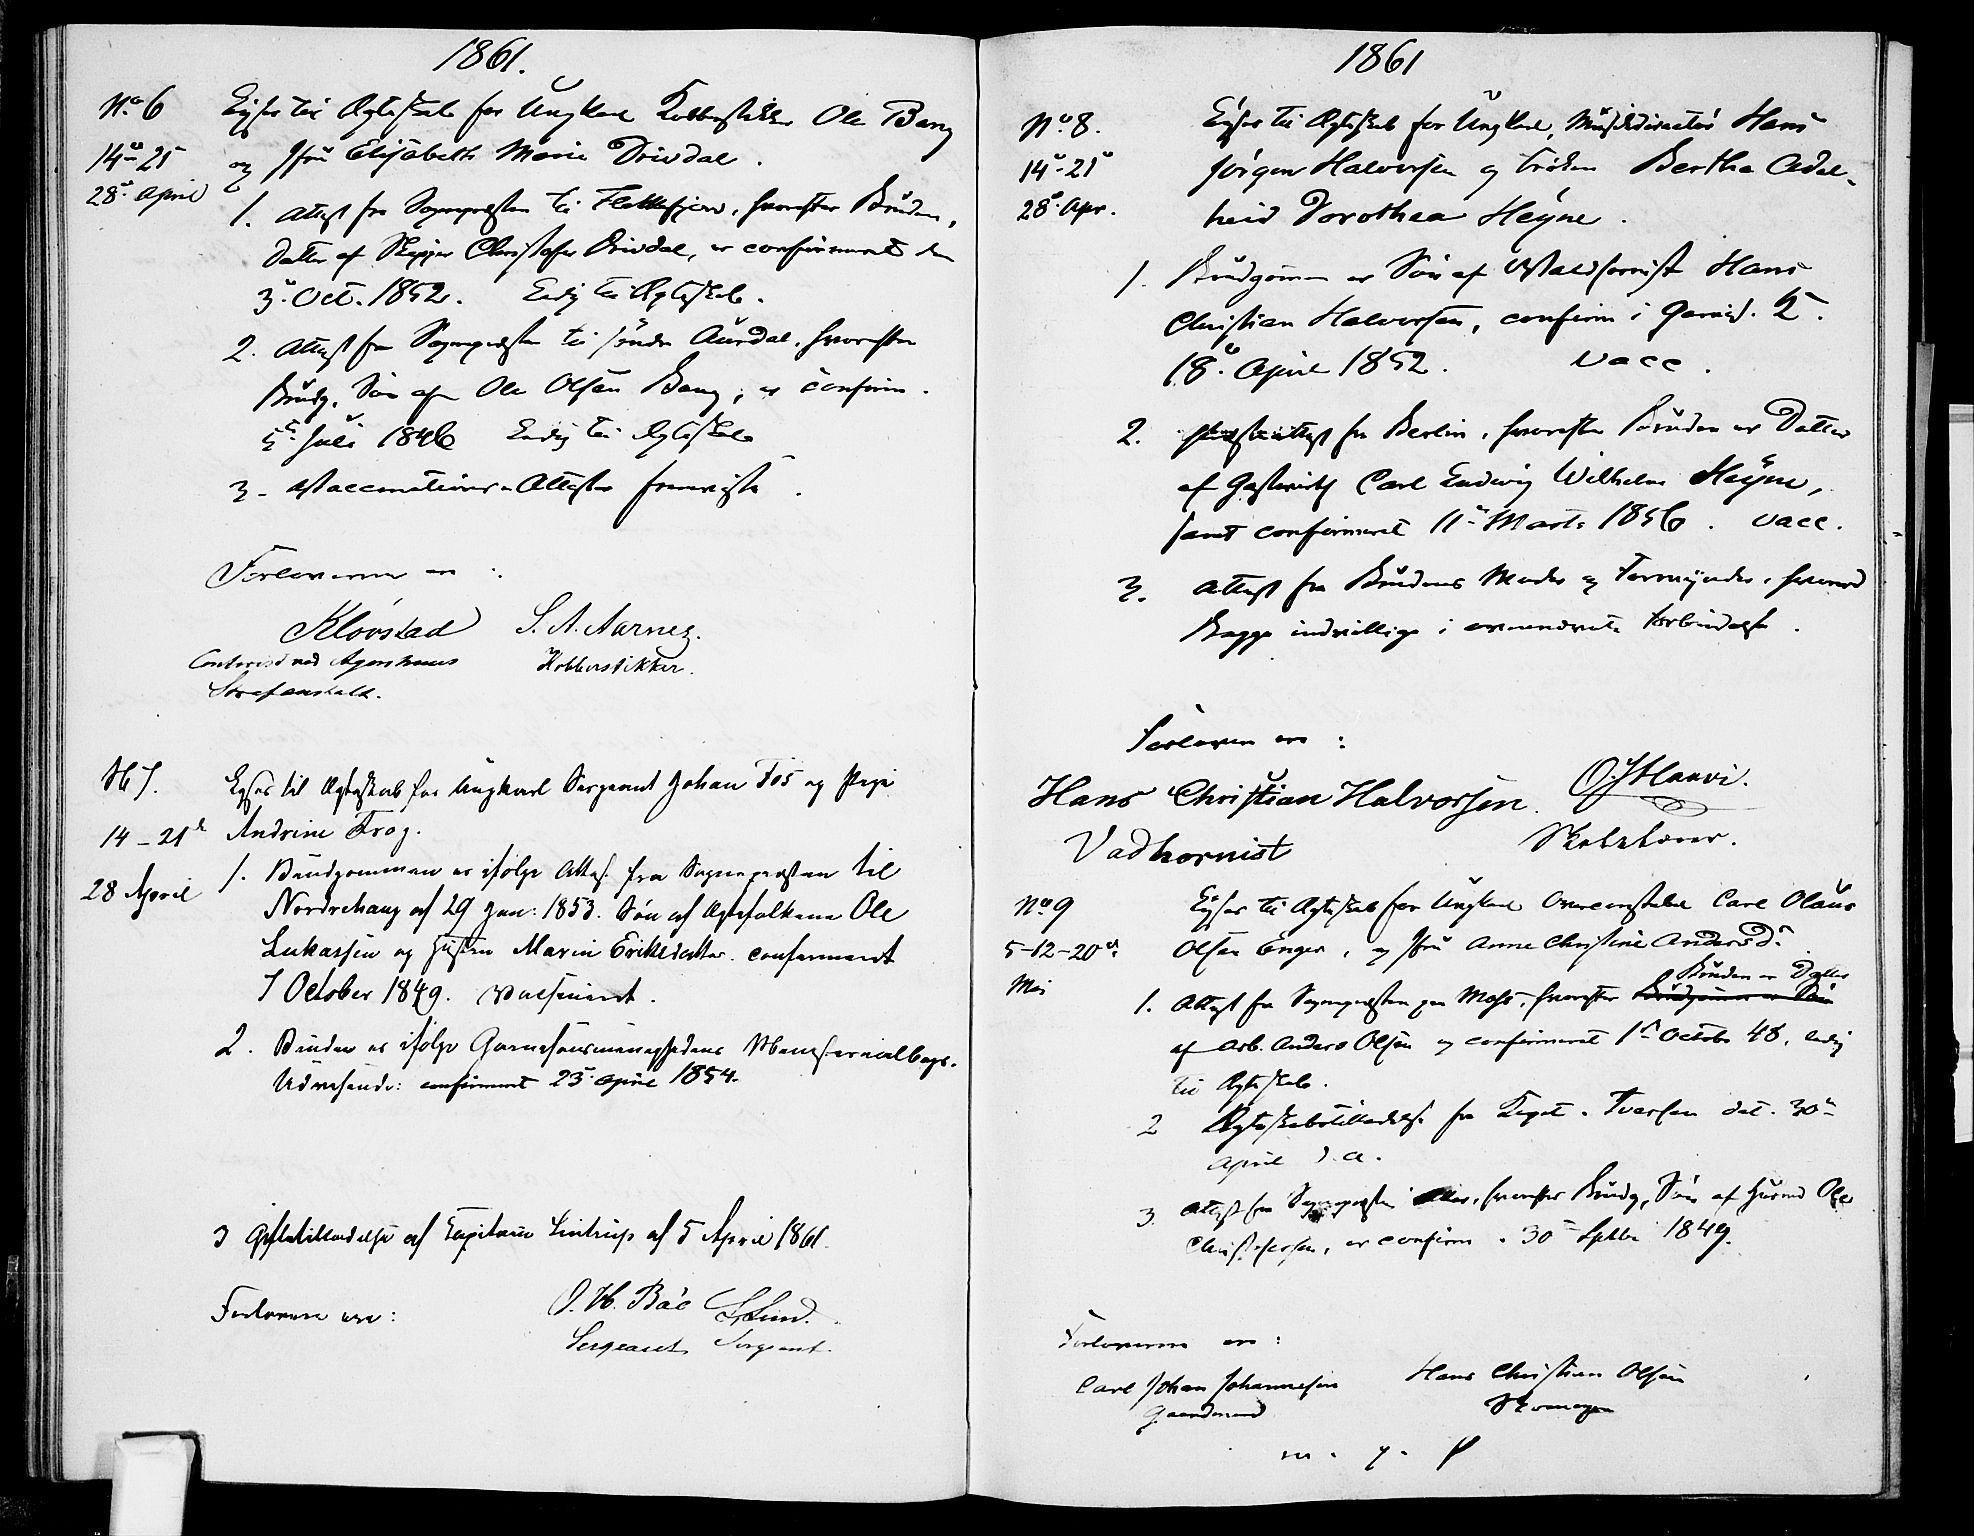 1861.
No 6
14de 21
28de April
Lyses til Ægteskab for Ungkarl Kobberstikker Ole Bang
og Jfru Elisabeth Marie Drivdal.
1. Attest fra Sognepræsten til Flekkefjord, hvorefter Bruden,
Datter af Skipper Christofer Drivdal, er confirmeret den
3die Oct. 1852. Ledig til Ægteskab.
2. Attest fra Sognepræsten til søndre Aurdal, hvorefter
Brudg. Søn af Ole Olsen Bang, er confirm.
5te Juli 1846 Ledig til Ægteskab
3. Vaccinations-Attester foreviste.
Forloverne ere:
Klovstad
Contorist ved Agershuus
Strafanstalt.
S. A. Aarnes.
Kobberstikker.
No 7.
14 - 21de
28 April
Lyses til Ægteskab for Ungkarl Sergeant Johan Fos og Pige
Andrine Frog.
1. Brudgommen er ifølge Attest fra Sognepræsten til
Norderhaug af 29 Jan: 1853. Søn af Ægtefolkene Ole
Lukassen og Hustru Marin Eriksdatter. confirmeret
7 October 1849. Vaccineret.
2. Bruden er ifølge Garnisonsmenighedens Ministerialbogs-
Udvisende: confirmeret 23de April 1854.
3 Giftetilladelse af Capitain Lintrup af 5 April 1861.
Forloverne ere:
O. H. Bäe
Sergeant
Lund.
Sergeant.
1861
No 8.
14de - 21de
28de Apr.
Lyses til Ægteskab for Ungkarl, Musikdirecteur Hans
Jörgen Halvorsen og Fröken Bertha Adel-
heid Dorothea Heyne.
1. Brudgommen er Sön af Valdhornist Hans
Christian Halvorsen, confirm i Garnis. K.
18de April 1852. vacc.
2. Præsteattest fra Berlin, hvorefter Bruden er Datter
af Gastwirth Carl Ludwig Wilhelm Heyne,
samt confirmeret 11te Marts 1856. vacc.
3. Attest fra Brudens Moder og Formynder, hvorved
Begge indvillige i ovennævnte Forbindelse.
Forlovere ere:
Hans Christian Halvorsen.
Valdhornist
Skolelærer.
No 9
5-12-20de
Mai
Lyses til Ægteskab for Ungkarl Overconstabel Carl Olaus
Olsen Enger, og Jfru Anne Christine Andersd.
Bruden er Datter
1. Attest fra Sognepræsten paa Moss, hvorefter Brudgommen er Søn
af Arb. Anders Olsen og confirmeret 1ste October 48, ledig
til Ægteskab.
2 Ægteskabstilladelse fra Capt. Iversen dat. 30te
April d. A.
3. Attest fra Sognepræsten hvorefter Brudg, Søn af Husmd Ole
Christophersen, er confirm. 30te Septbr 1849.
Forloverne ere:
Carl Johan Johannesen
Gaardmand
Hans Christian Olsen
Skomager
m. p. P